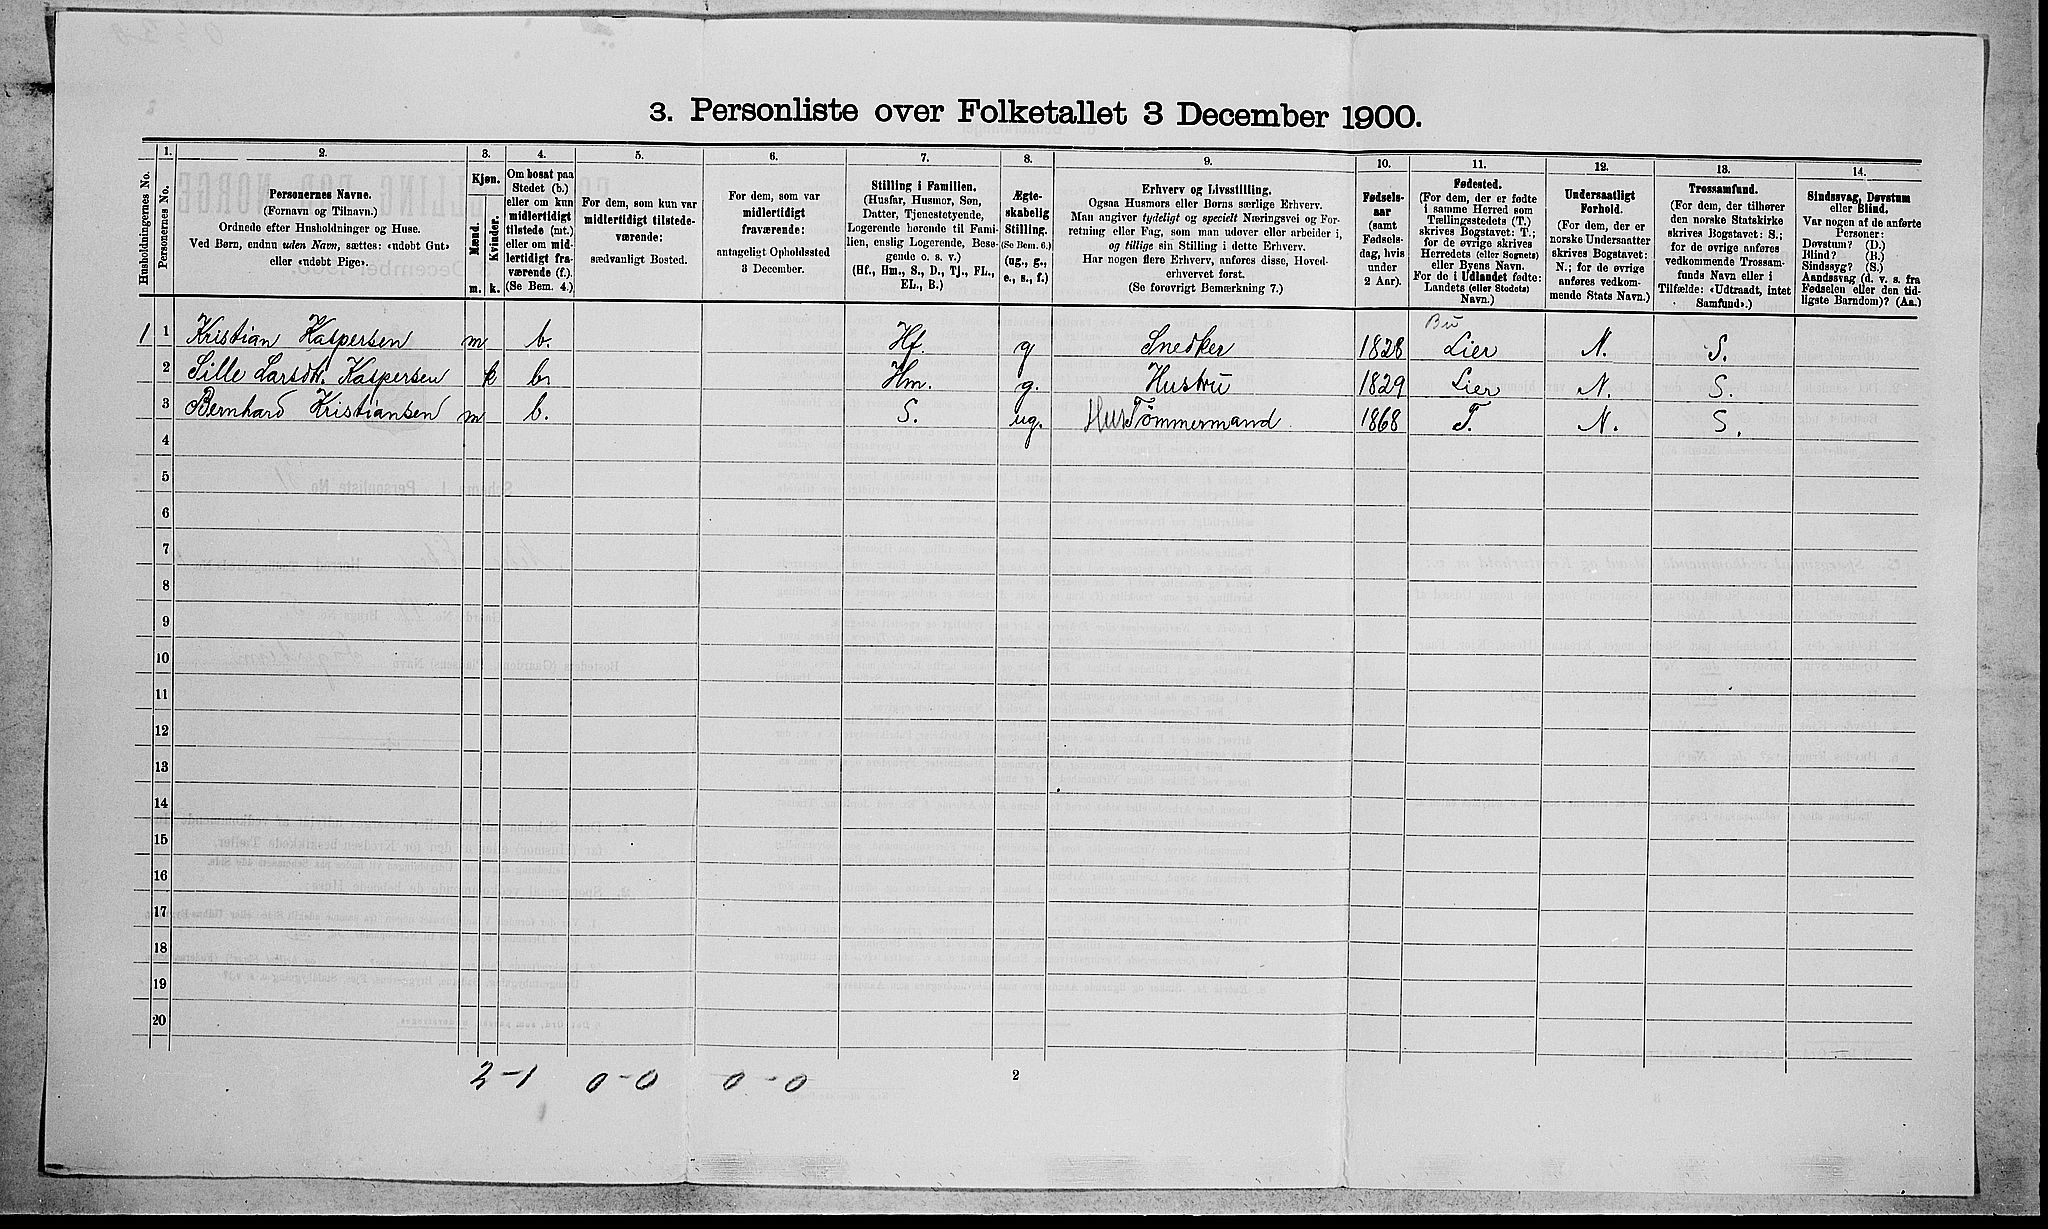 3. Personliste over Folketallet 3 December 1900.
1. 2. 3. 4. 5. 6. 7. 8. 9. 10. 11. 12. 13. 14.
Husholdningernes No.
Personernes No.
Personernes Navne.
(Fornavn og Tilnavn.)
Ordnede efter Husholdninger og Huse.
Ved Børn, endnu uden Navn, sættes: «udøbt Gut»
eller «udøbt Pige».
Kjøn.
Mænd.
Kvinder.
m. k.
Om bosat paa
Stedet (b.)
eller om kun
midlertidigt
tilstede (mt.)
eller om mid-
lertidigt fra-
værende (f.).
(Se Bem. 4.)
For dem, som kun var
midlertidigt tilstede-
værende:
sædvanligt Bosted.
For dem, som var
midlertidigt
fraværende:
antageligt Opholdssted
3 December.
Stilling i Familien.
(Husfar, Husmor, Søn,
Datter, Tjenestetyende,
Logerende hørende til Fami-
lien, enslig Logerende, Besø-
gende o. s. v.)
(Hf., Hm., S., D., Tj., FL.,
EL., B.)
Ægte-
skabelig
Stilling.
(Se Bem. 6.)
(ug., g.,
e., s., f.)
Erhverv og Livsstilling.
Ogsaa Husmors eller Børns særlige Erhverv.
Man angiver tydeligt og specielt Næringsvei og For-
retning eller Fag, som man udøver eller arbeider i,
og tillige sin Stilling i dette Erhverv.
Har nogen flere Erhverv, anføres disse, Hoved-
erhvervet først.
(Se forøvrigt Bemærkning 7.)
Fødsels-
aar
(samt
Fødsels-
dag, hvis
under
2 Aar).
Fødested.
(For dem, der er fødte
i samme Herred som
Tællingsstedets (T.)
skrives Bogstavet: T.;
for de øvrige skrives
Herredets (eller Sognets)
eller Byens Navn.
For de i Udlandet fødte:
Landets (eller Stedets)
Navn.)
Undersaatligt
Forhold.
(For dem, der er
norske Undersaatter
skrives Bogstavet:
N.; for de øvrige
anføres vedkom-
mende Stats Navn.)
Trossamfund.
(For dem, der tilhører
den norske Statskirke
skrives Bogstavet: S.;
for de øvrige anføres
vedkommende Trossam-
funds Navn eller i
Tilfælde: «Udtraadt, intet
Samfund».)
Sindssvag, Døvstum
eller Blind.
Var nogen af de anførte
Personer:
Døvstum? (D.)
Blind? (B.)
Sindssyg? (S.)
Aandssvag (d. v. s. fra
Fødselen eller den tid-
ligste Barndom)? (Aa.)
Bu
1 1 Kristian Kaspersen m b. Hf. g Snedker 1828 Lier N. S.
2 Sille Larsdtr. Kaspersen k b. Hm. g. Hustru 1829 Lier N. S.
3 Bernhard Kristiansen m b. S. ug. Hus Tømmermand 1868 T. N. S.
4
5
6
7
8
9
10
11
12
13
14
15
16
17
18
19
20
2-1 0-0 0-0 2